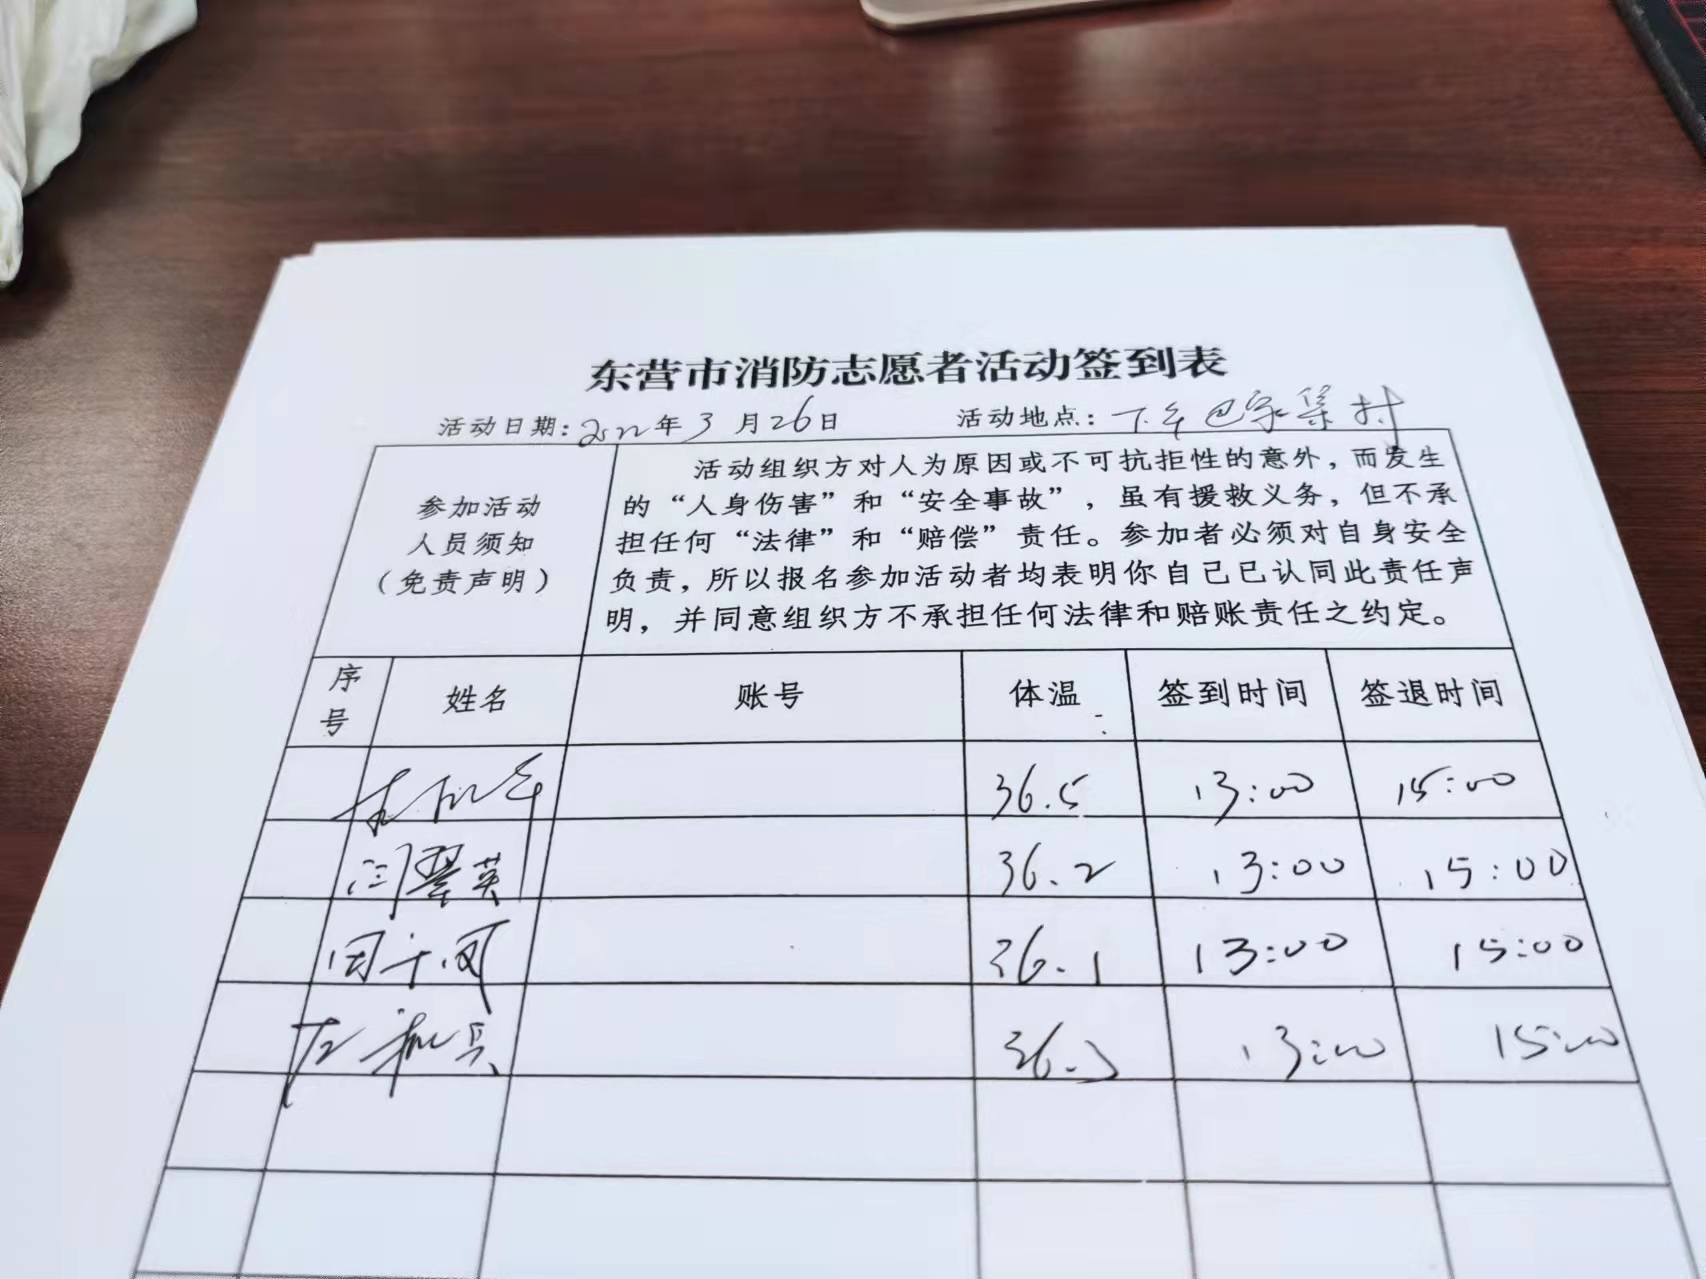 东营市消防志愿者活动签到表
活动日期：2022年3月26日 活动地点：巴家集村
参加活动
人员须知
（免责声明）
活动组织方对人为原因或不可抗拒性的意外，而发生
的“人身伤害”和“安全事故”，虽有援救义务，但不承
担任何“法律”和“赔偿”责任。参加者必须对自身安全
负责，所以报名参加活动者均表明你自己已认同此责任声
明，并同意组织方不承担任何法律和赔账责任之约定。
序号 姓名 账号 体温 签到时间 签退时间
36.5 13:00 15:00
闫翠英 36.2 13:00 15:00
36.1 13:00 15:00
36.3 13:00 15:00